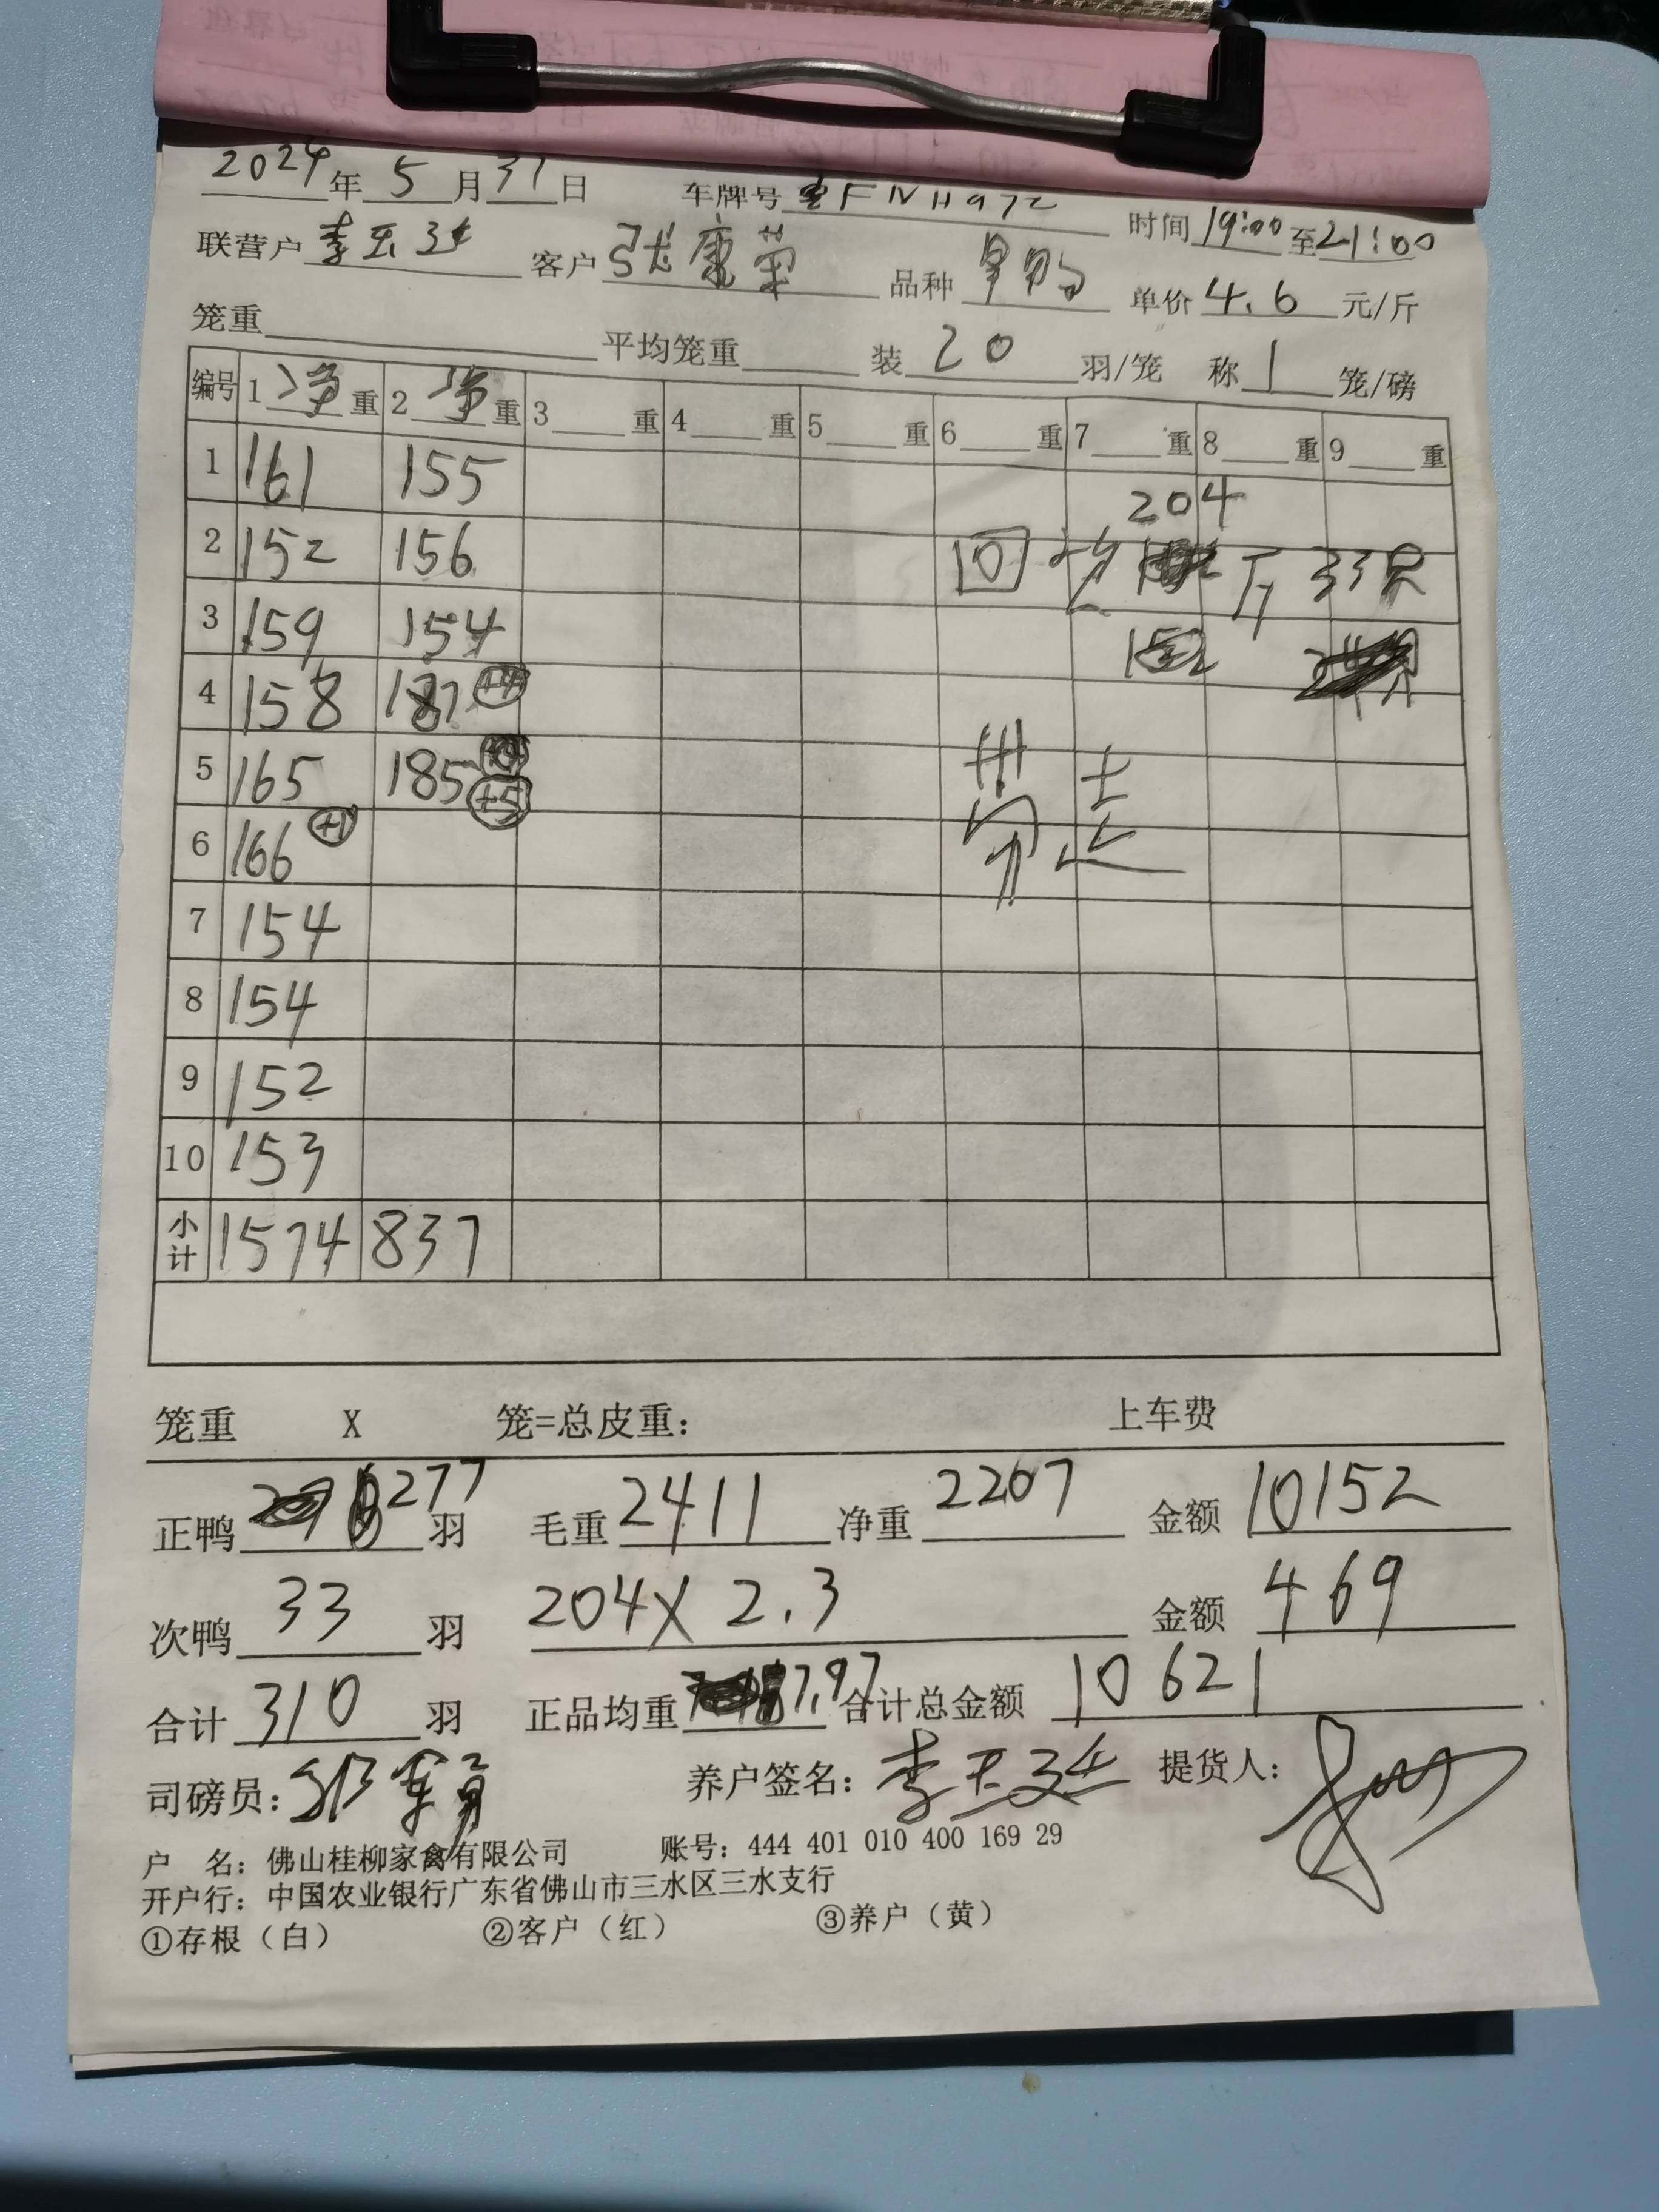 2024年5月31日 车牌号 时间19:00至21:00
联营户 客户张康菊 品种 单价4.6元/斤
笼重 平均笼重 装20羽/笼 称1笼/磅
编号 1净重 2净重 3重 4重 5重 6重 7重 8重 9重
1 161 155
204
2 152 156 回 斤 33只
3 159 154
4 158 187
5 165 185 +5
带走
6 166 +1
7 154
8 154
9 152
10 153
小计 1574 837
笼重 X 笼=总皮重: 上车费
正鸭277羽 毛重2411 净重2207 金额10152
次鸭33羽 204X2.3 金额469
合计310羽 正品均重7.97 合计总金额10621
司磅员: 养户签名: 提货人:
户 名: 佛山桂柳家禽有限公司 账号: 444 401 010 400 169 29
开户行: 中国农业银行广东省佛山市三水区三水支行
①存根（白） ②客户（红） ③养户（黄）